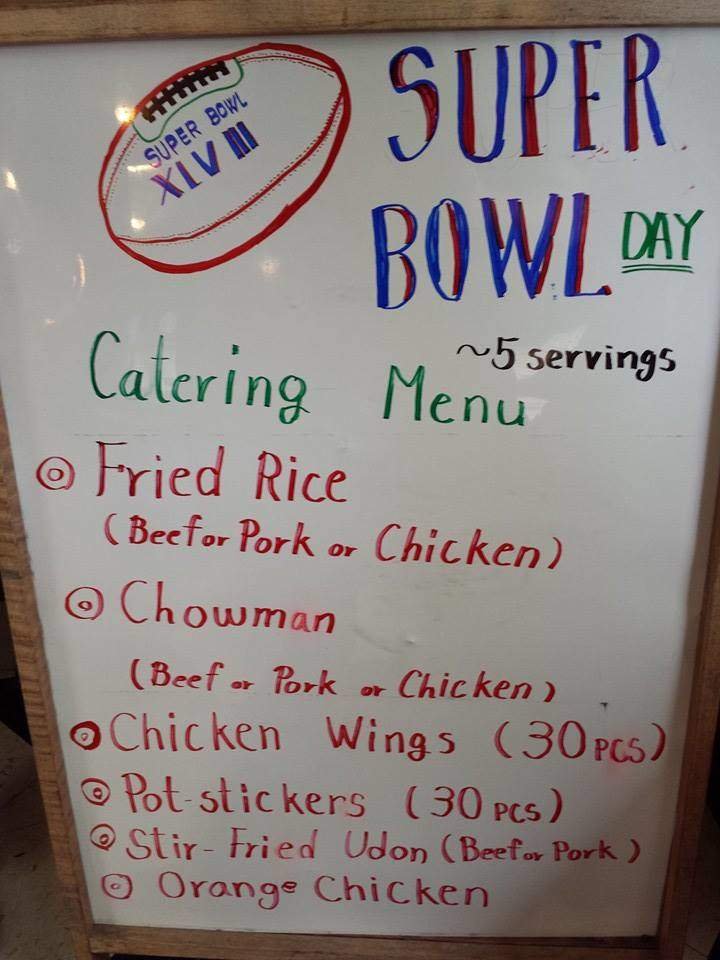 SUPER BOWL
XLVIII
SUPER
BOWL DAY
~5 servings
Catering Menu
Fried Rice
(Beef or Pork or Chicken)
Chowman
(Beef or Pork or Chicken)
Chicken Wings (30 PCS)
Pot-stickers (30 PCS)
Stir-Fried Udon (Beef or Pork)
Orange Chicken